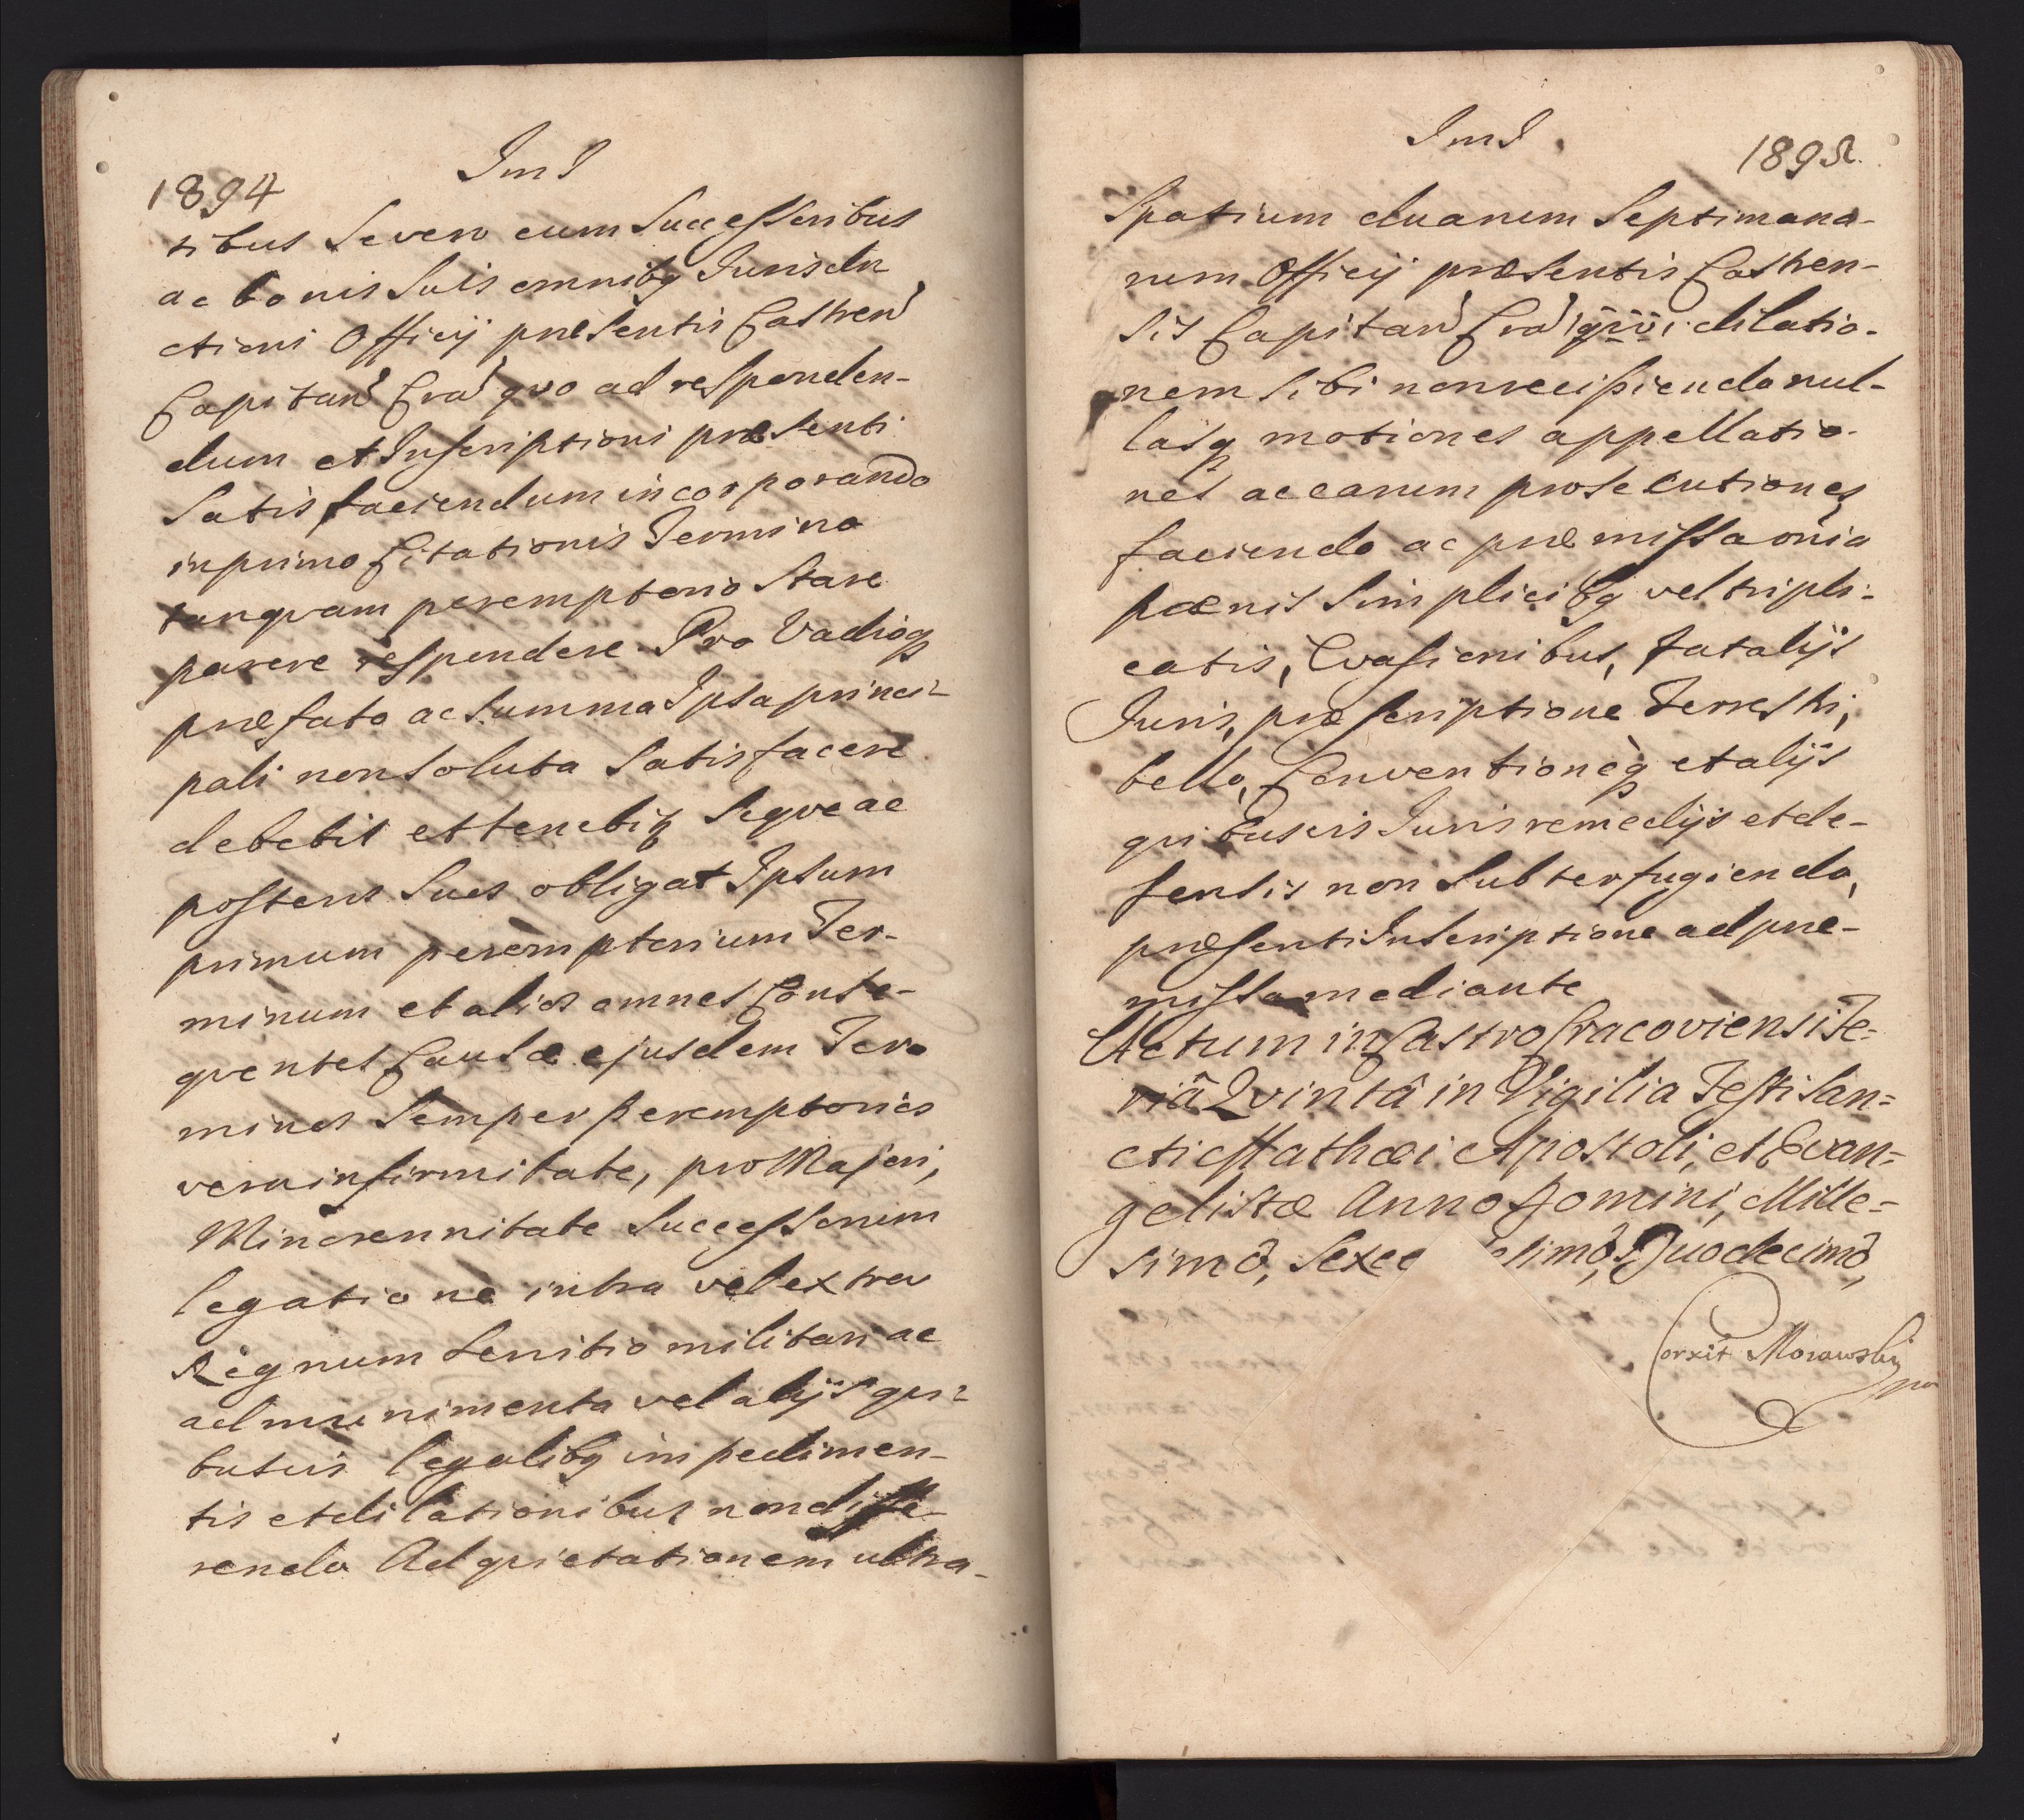 ImI
1894
tibus Se vero cum Successoribus
ac bonis Suis omnibq Jurisdi
ctioni Officij præsentis Castren
Capitan Cra quo ad responden-
dum et Inscriptioni præsenti
Satisfaciendum incorporando
in primo Citationis Termino
tanqvam peremptorio Stare
parere respondere. Pro Vadioq
præfato ac Summa Ipsa princi-
pali non Soluta Satisfacere
debebit et tenebit Seqve ac
posteros Suos obligat Ipsum
primum peremptorium Ter-
minum et alios omnes Conse-
qventes Causæ ejusdem Ter
minos Semper peremptorios
vera infirmitate, pro Majori,
Minorennitate Successorum
legatione intra vel extra
Regnum Servitio militari ac
ad munimenta vel alijs qui-
busvis legalibq impedimen-
tis et dilationibus non diffe-
rendo Ad qvietationem ultra-
ImI.
1895.
Spatium duarum Septimana-
rum Officij præsentis Castren-
sis Capitan Cra dilatio-
nem Sibi non recipiendo nul-
lasq motiones appellatio-
nes ac earum prosecutiones
faciendo ac præmissa oñia
pænis Simplicibq vel tripli-
catis, Evasionibus, fatalijs
Juris, præscriptione Terrestri,
bello, Conventioneq et alijs
quibusvis Juris remedijs et de-
fensis non Subterfugiendo,
præsenti Inscriptione ad præ-
missa mediante
Actum in Castro Cracoviensi Fe-
riâ Qvintâ in Vigilia Festi San=
cti Mathæi Apostoli, et Evan=
gelistæ Anno Domini, Mille=
simô, Sexce simô, Duodecimô,
Corxit Morawski